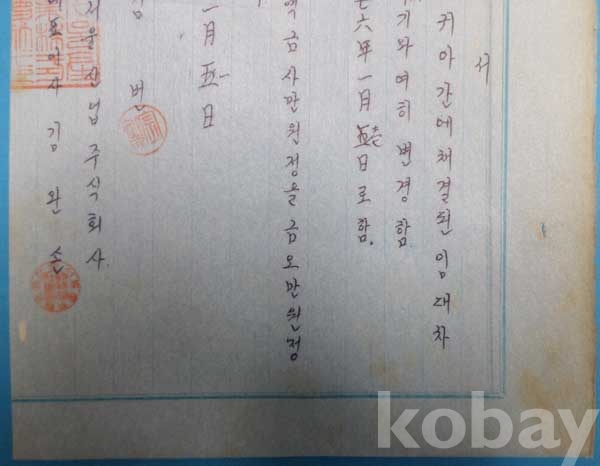 서
귀아간에 채결된 임대차
기와 여히 변경함
六年一月五日로 함.
금사만원정을 금오만원정
一月五日
번
서울산업주식회사
김완손
kobay